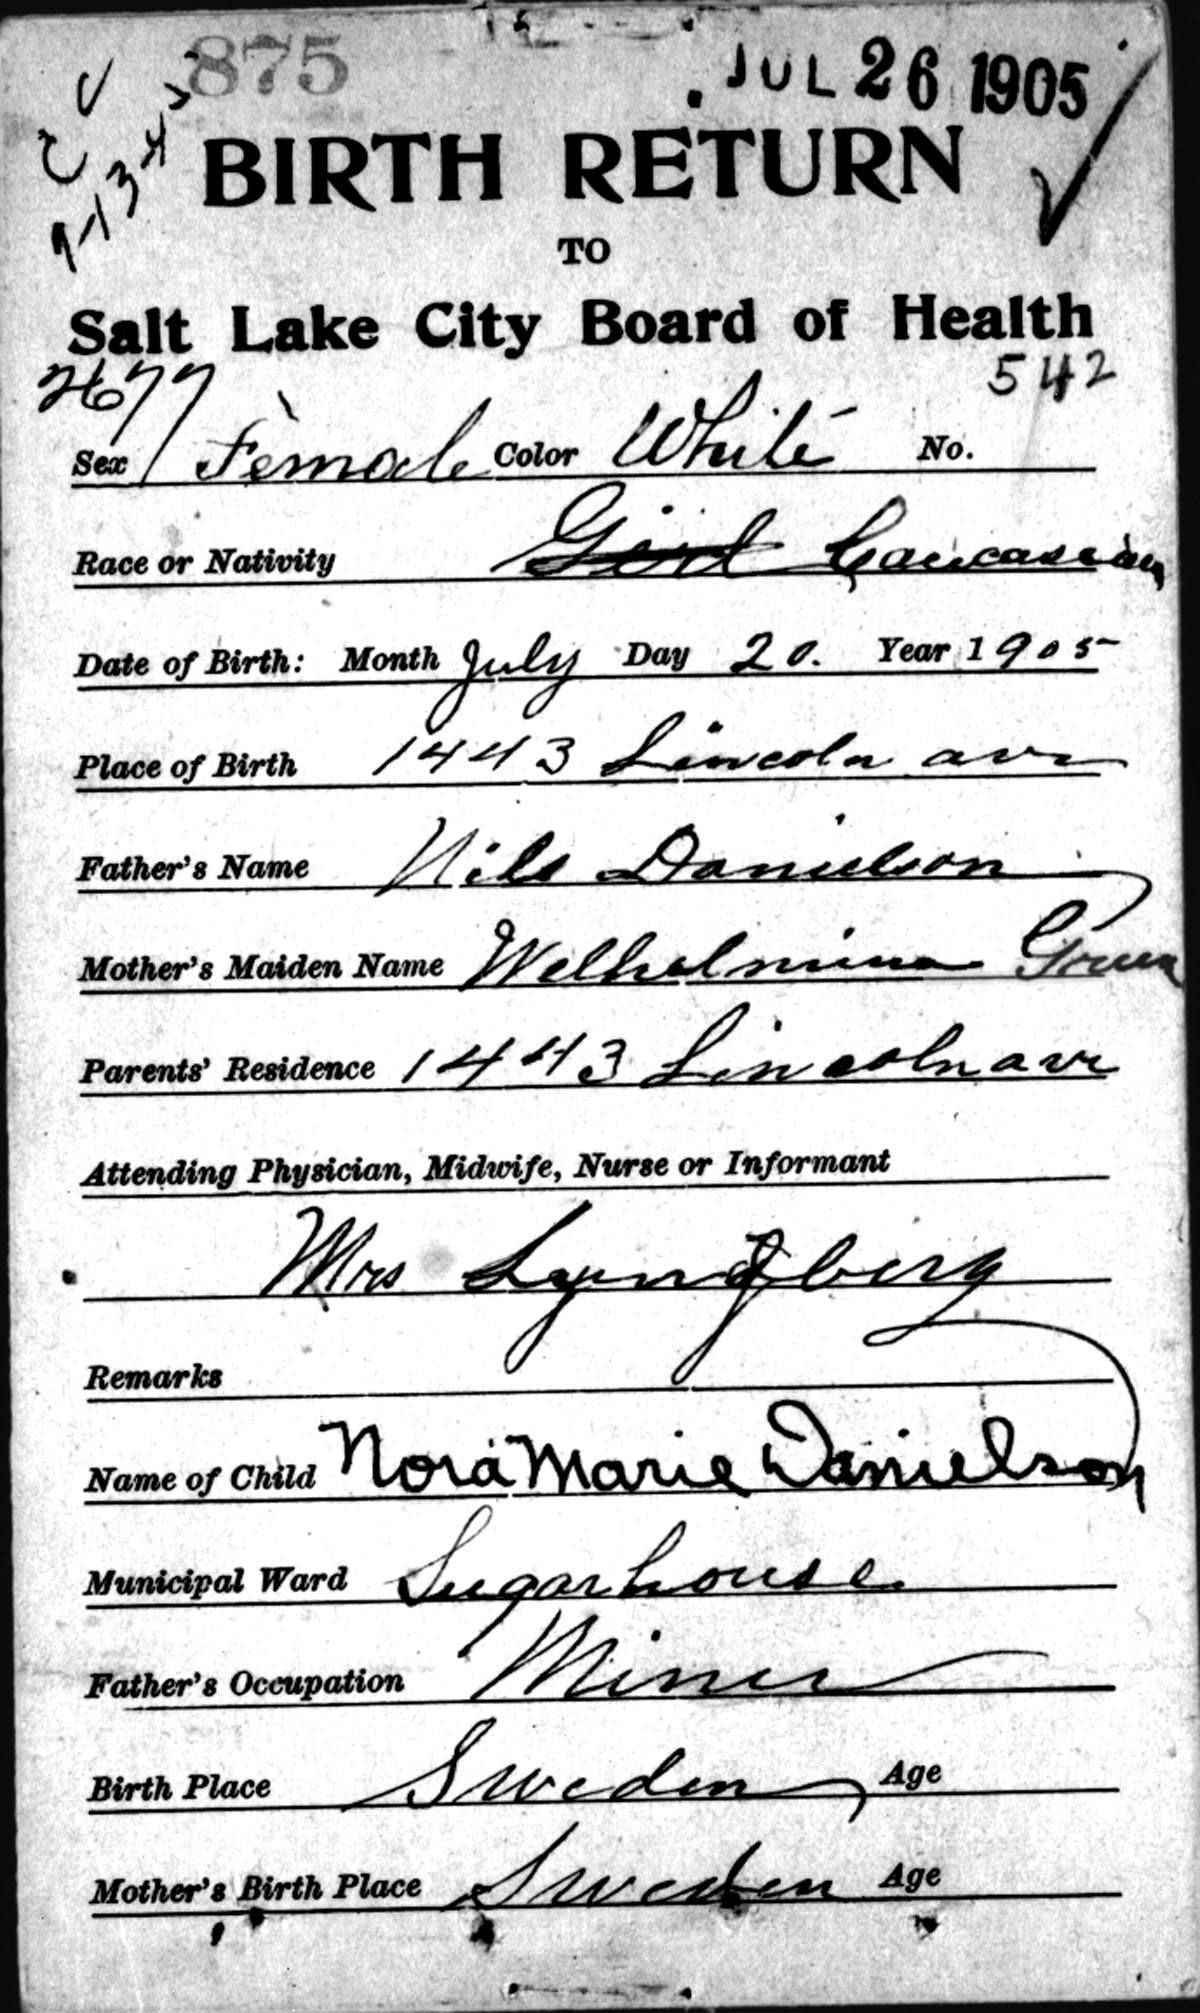 875 JUL 26 1905
C C
9-13-4
BIRTH RETURN
TO
Salt Lake City Board of Health
2677 542
Sex Female Color White No.
Race or Nativity Girl Caucasian
Date of Birth: Month July Day 20. Year 1905
Place of Birth 1443 Lincoln ave
Father's Name Nils Danielson
Mother's Maiden Name Welhelmina
Parents' Residence 1443 Lincoln ave
Attending Physician, Midwife, Nurse or Informant
Mrs Lyngberg
Remarks
Name of Child Nora Marie Danielson
Municipal Ward Sugarhouse.
Father's Occupation Miner
Birth Place Sweden Age
Mother's Birth Place Sweden Age